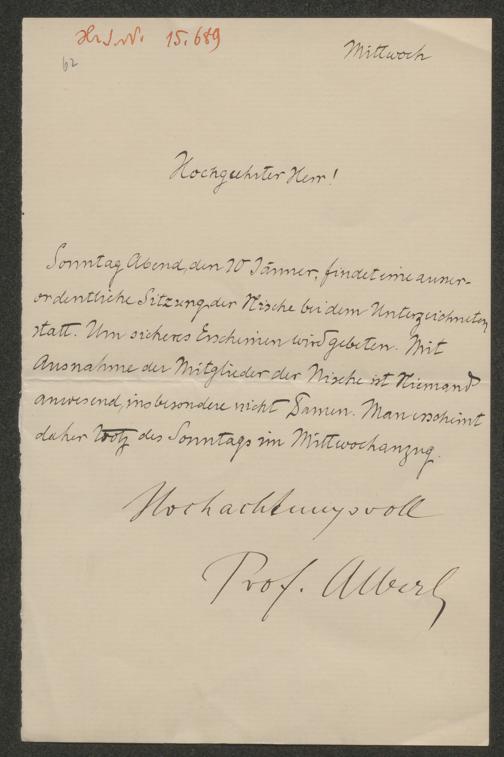 H.I.N. 15.689
62
Mittwoch
Hochgeehrter Herr!
Sonntag Abend, den 10 Jänner, findet eine ausser-
ordentliche Sitzung der Nische bei dem Unterzeichneten
statt. Um sicheres Erscheinen wird gebeten. Mit
Ausnahme der Mitglieder der Nische ist Niemand
anwesend, insbesondere nicht Damen. Man erscheint
daher trotz des Sonntags im Mittwochanzug.
Hochachtungsvoll
Prof. Albert